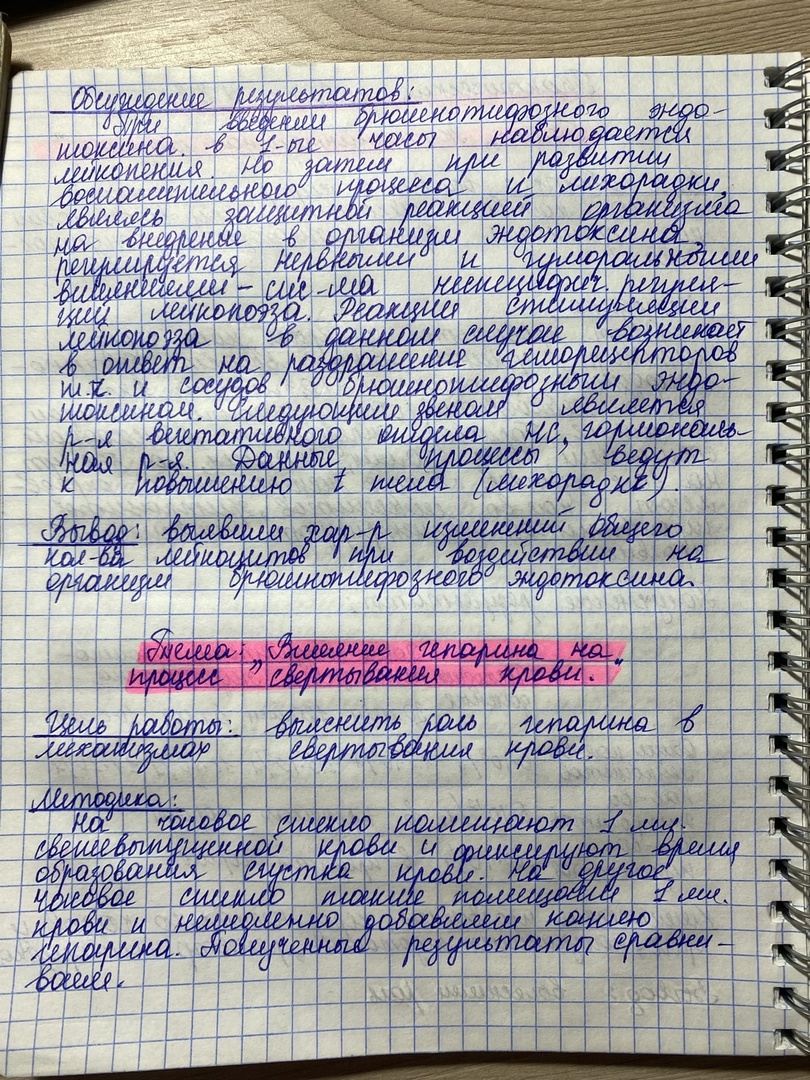 Обсуждение результатов:
При введении брюшнотифозного эндо-
токсина в 1-ые часы наблюдается
лейкопения. Но затем при развитии
воспалительного процесса и лихорадки,
являясь защитной реакцией организма
на внедрение в организм эндотоксина,
регулируется нервными и гуморальными
влияниями - сис-ма неспецифич. регуля-
ции лейкопоэза. Реакции стимуляции
лейкопоэза в данном случае возникает
в ответ на раздражение хеморецепторов
т.к. и сосудов брюшнотифозным эндо-
токсином. Следующим звеном является
р-я вегетативного отдела НС, гормональ-
ная р-я. Данные процессы ведут
к повышению t тела (лихорадке).
Вывод: выявили хар-р изменений общего
кол-ва лейкоцитов при воздействии на
организм брюшнотифозного эндотоксина.
Тема: Влияние гепарина на
процесс „свертывания крови."
Цель работы: выяснить роль гепарина в
механизмах свертывания крови.
Методика:
На часовое стекло помещают 1 мл.
свежевыпущенной крови и фиксируют время
образования сгустка крови. На другое
часовое стекло также помещали 1 мл.
крови и немедленно добавляем каплю
гепарина. Полученные результаты сравни-
ваем.